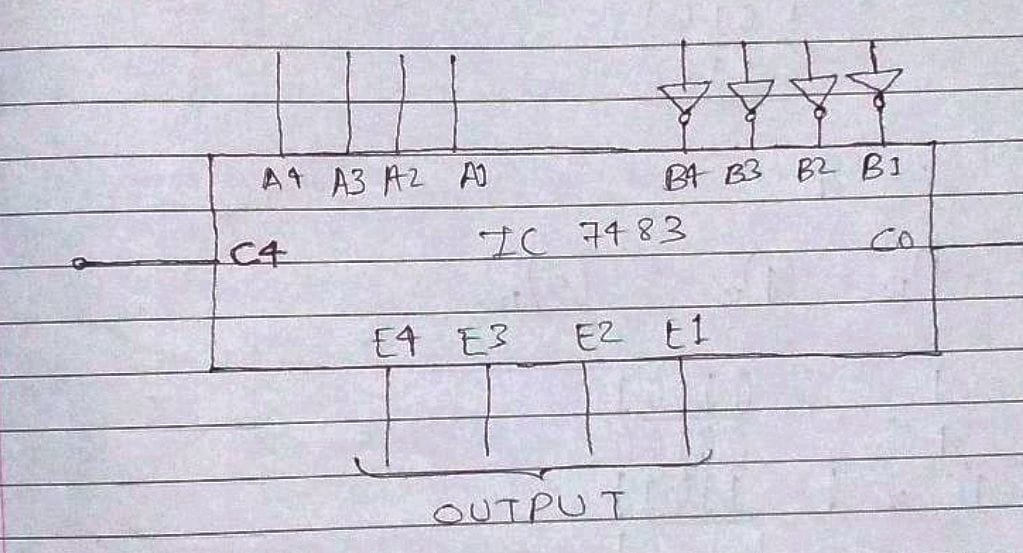 A4 A3 A2 A1 B4 B3 B2 B1
C4 IC 7483 C0
E4 E3 E2 E1
OUTPUT